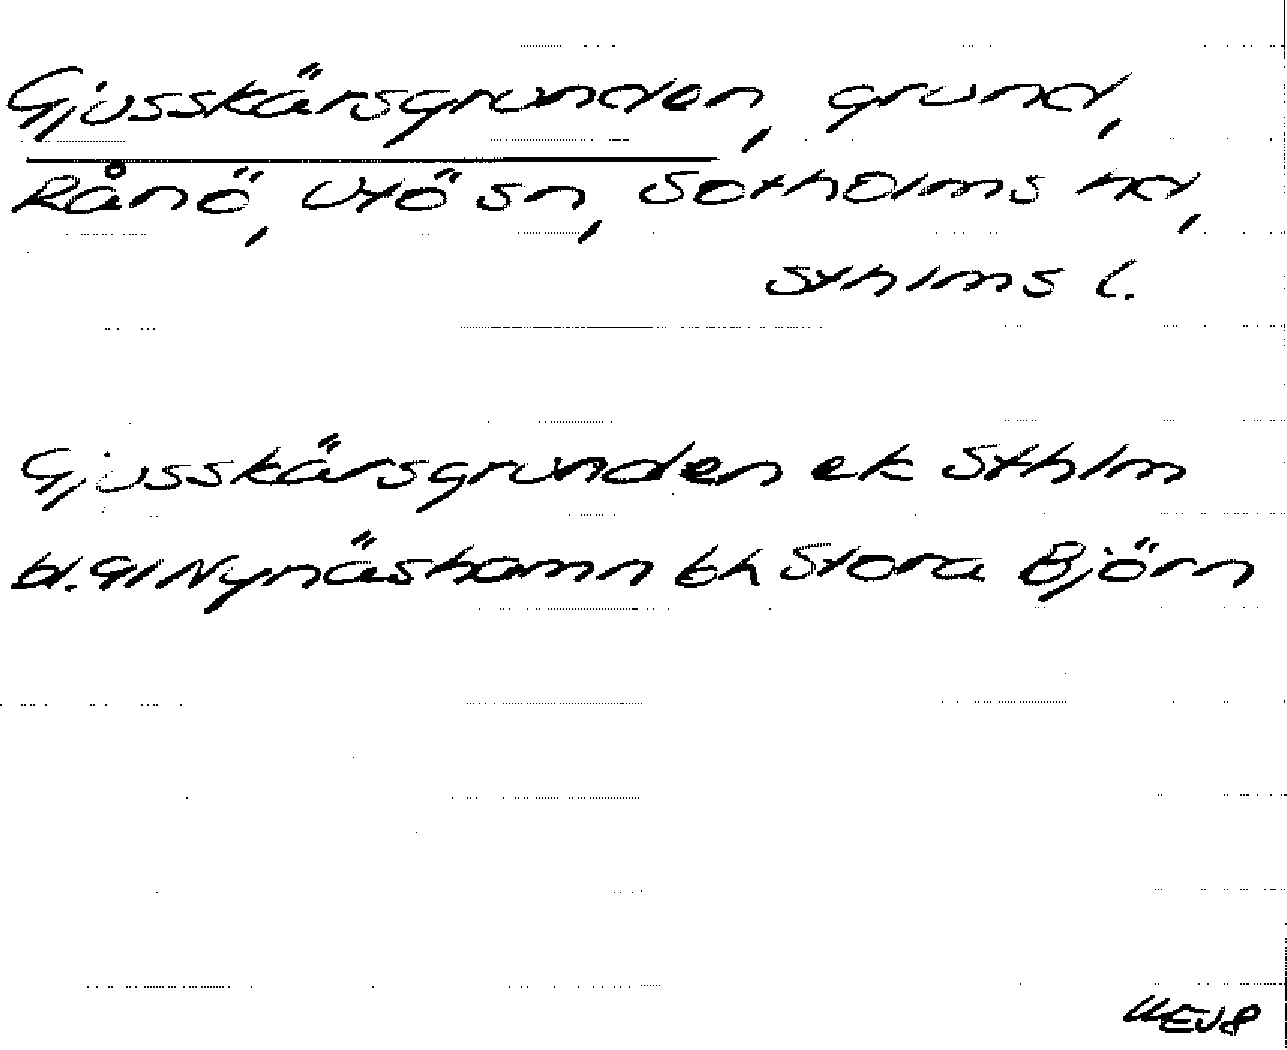 Gjusskärsgrunden, grund,
Rånö, Utö sn, Sotholms hd,
Sthlms l.
Gjusskärsgrunden ek Sthlm
bl. 9I Nynäshamn bh Stora Björn